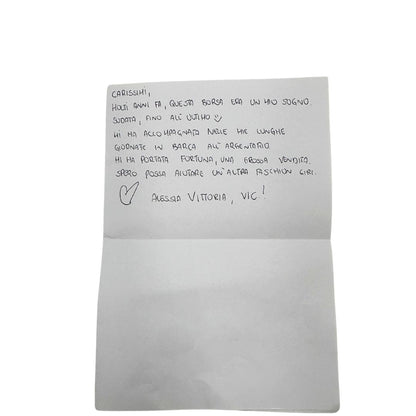 CARISSIMI,
MOLTI ANNI FA, QUESTA BORSA ERA UN MIO SOGNO.
SUDATA, FINO ALL'ULTIMO
MI HA ACCOMPAGNATA NELLE MIE LUNGHE
GIORNATE IN BARCA ALL'ARGENTARIO.
MI HA PORTATA FORTUNA, UNA GROSSA VENDITA.
SPERO POSSA AIUTARE UN'ALTRA FASCHION GIRL.
ALESSIA VITTORIA, VIC!